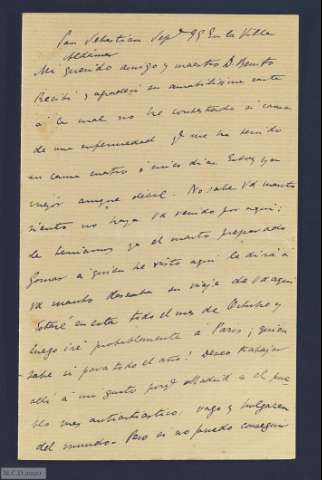 San Sebastian Sepe 95 En la Villa
Aldámar
Mi querido amigo y maestro D. Benito
Recibí y agradecí su amabilísima carta
á la cual no he contestado á causa
de una enfermedad qe me ha tenido
en cama cuatro ó cinco dias. Estoy ya
mejor aunque débil. No sabe Vd cuanto
siento no haya Vd venido por aquí;
le teníamos ya el cuarto preparado
Gomar á quien he visto aquí le dirá á
Vd cuanto deseaba su viaje de Vd aquí
Estaré en esta todo el mes de Octubre y
luego iré probablemente á Paris; quien
sabe si para todo el año! Deseo trabajar
allí á mi gusto porqe Madrid es el pue
blo mas antiartístico, vago y holgazan
del mundo. Pero si no puedo conseguir